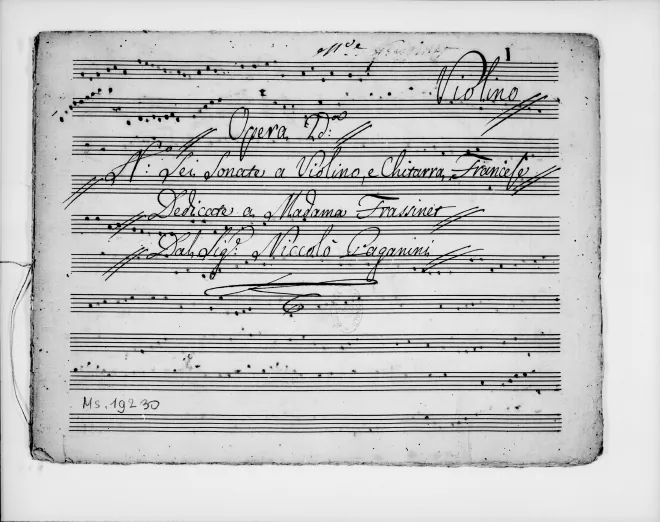 M.de Frassinet
1
Violino
Opera 2.da
N.o Sei Sonate a Violino, e Chitarra Francese
Dedicate a Madama Frassinet
Dal Sig.r Niccolò Paganini
Ms. 19230